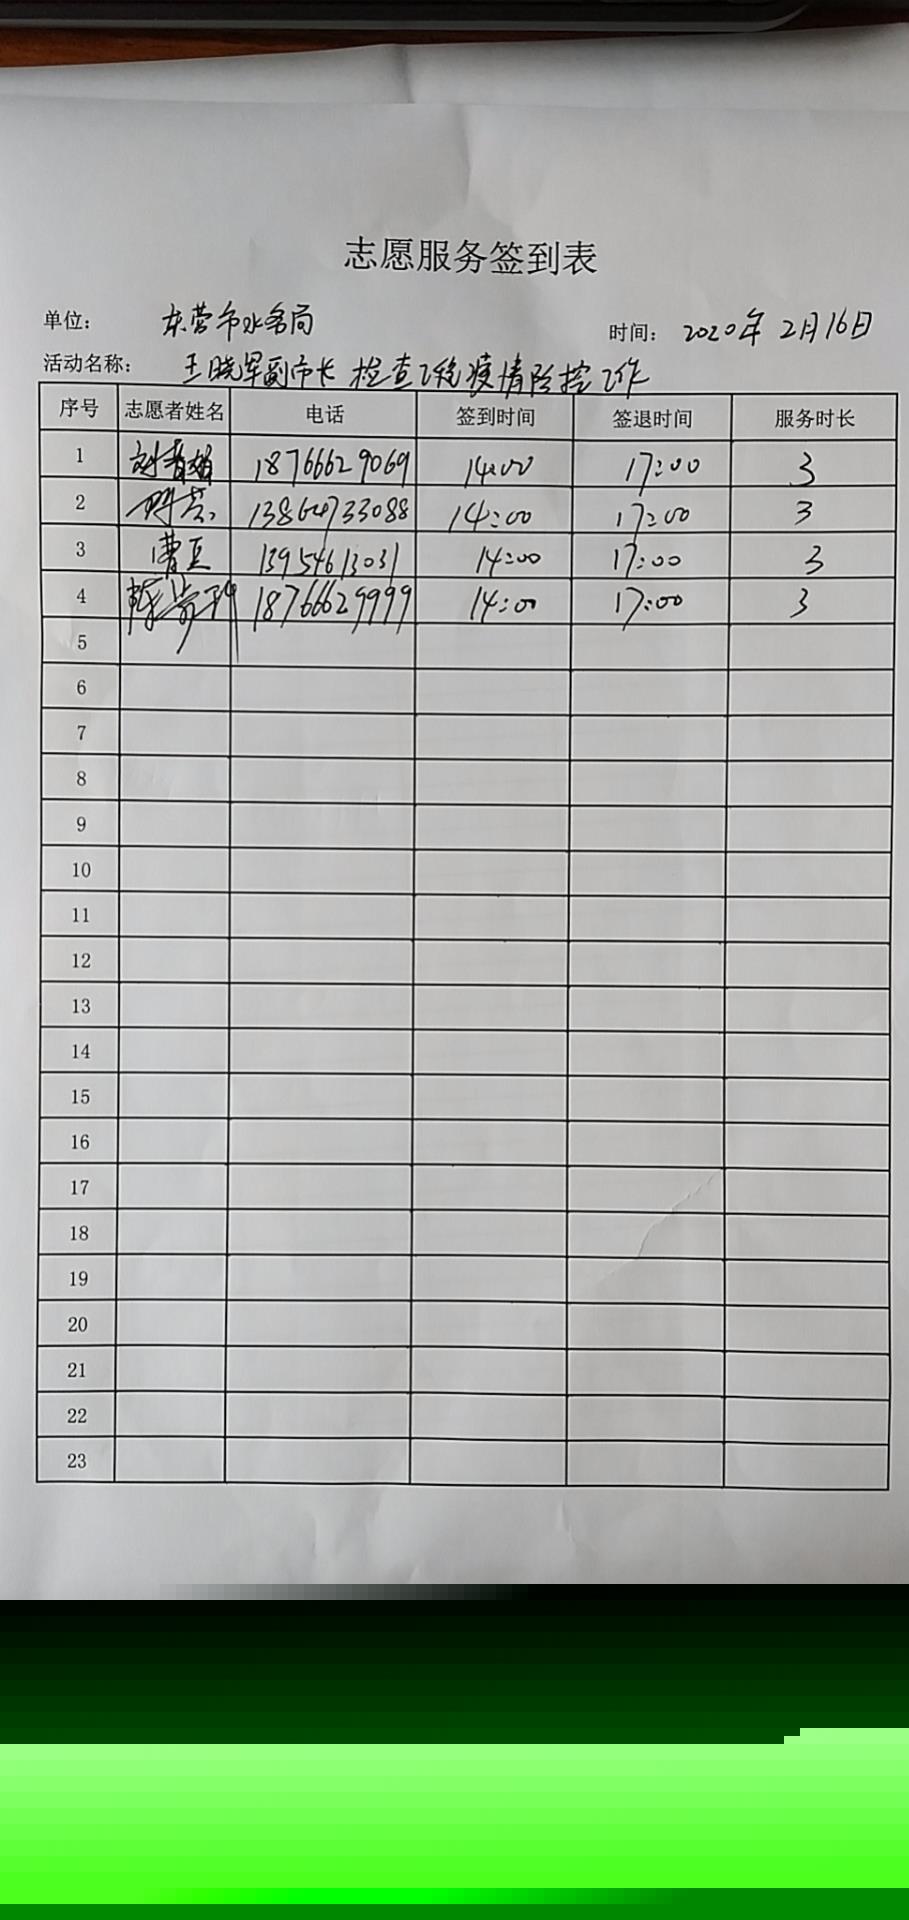 志愿服务签到表
单位： 东营市水务局
时间： 2020年2月16日
活动名称： 王晓军副市长检查工程疫情防控工作
序号 志愿者姓名 电话 签到时间 签退时间 服务时长
1 18766629069 14:00 17:00 3
2 14:00 17:00 3
3 曹 13954613031 14:00 17:00 3
4 陈 18766629999 14:00 17:00 3
5
6
7
8
9
10
11
12
13
14
15
16
17
18
19
20
21
22
23